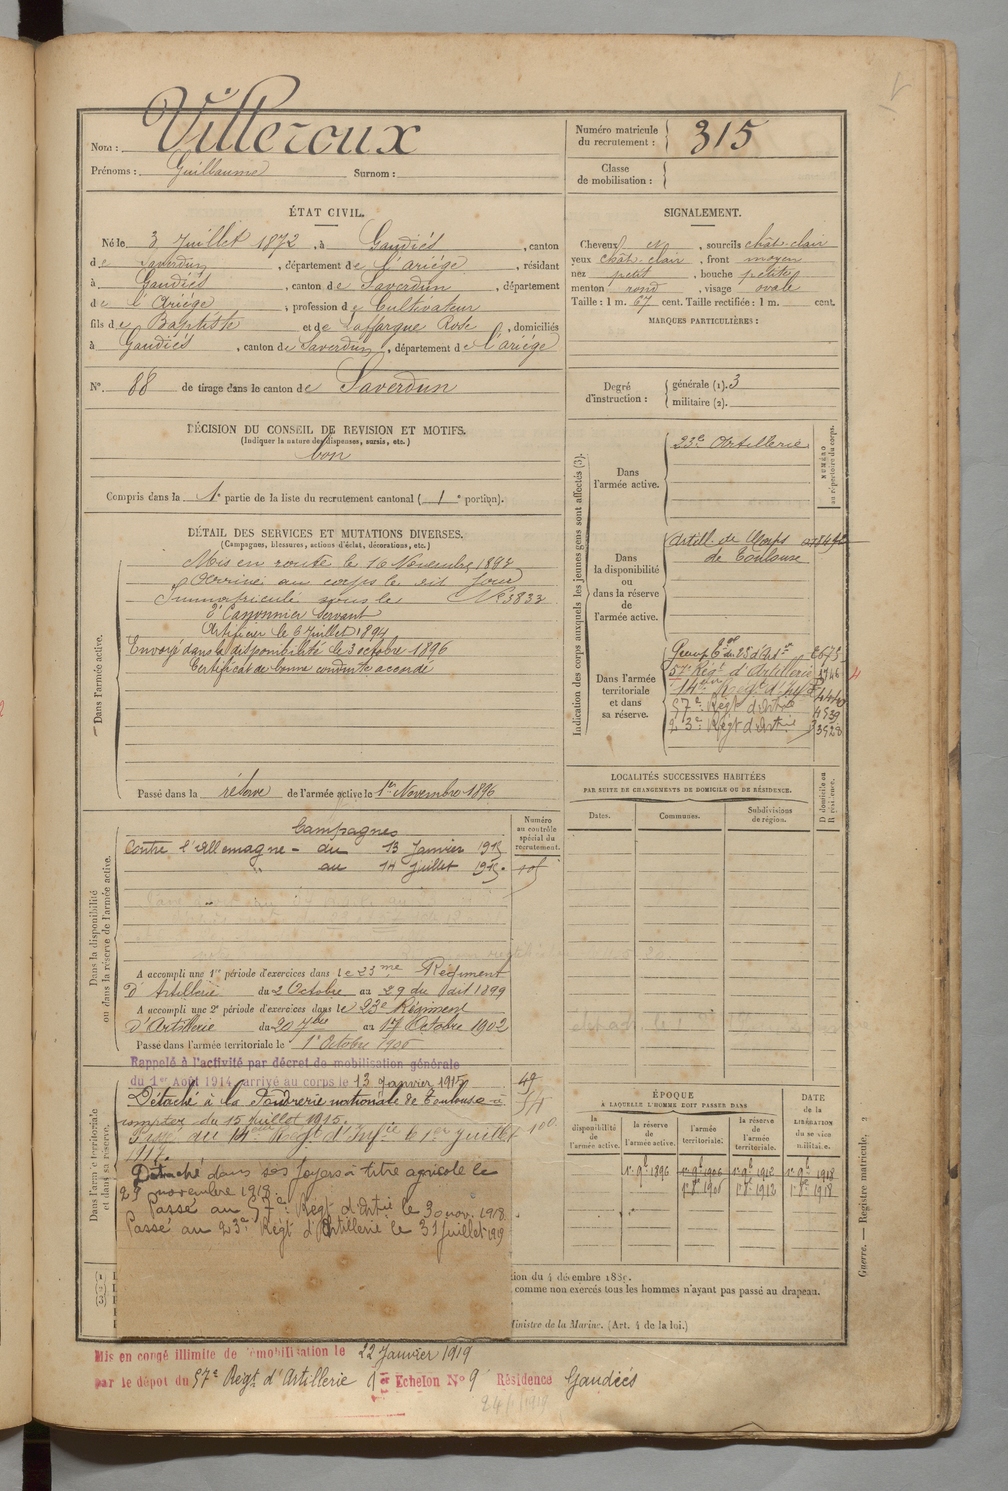 Nom : Villeroux
Prénoms : Guillaume Surnom :
Numéro matricule du recrutement : 315
Classe de mobilisation :
ÉTAT CIVIL.
Né le 3 Juillet 1872, à Gaudiés, canton
de Saverdun, département de l'ariége, résidant
à Gaudiés, canton de Saverdun, département
de l'Ariége, profession de Cultivateur
fils de Baptiste et de Laffargue Rose, domiciliés
à Gaudiés, canton de Saverdun, département de l'ariége
N° 88 de tirage dans le canton de Saverdun
SIGNALEMENT.
Cheveux n, sourcils chât-clair
yeux chât-clair, front moyen
nez petit, bouche petite
menton rond, visage ovale
Taille : 1 m. 67 cent. Taille rectifiée : 1 m. cent.
MARQUES PARTICULIÈRES :
Degré d'instruction : générale (1). 3
militaire (2).
DÉCISION DU CONSEIL DE REVISION ET MOTIFS.
(Indiquer la nature des dispenses, sursis, etc.)
bon
Compris dans la 1e partie de la liste du recrutement cantonal ( 1e portion).
DÉTAIL DES SERVICES ET MUTATIONS DIVERSES.
(Campagnes, blessures, actions d'éclat, décorations, etc.)
Dans l'armée active.
Mis en route le 16 Novembre 1893
Arrivé au corps le dit jour
Immatriculé sous le N° 3833
2e Canonnier Servant
Artificier le 6 Juillet 1894
Envoyé dans la disponibilité le 3 octobre 1896
Certificat de bonne conduite accordé
Passé dans la réserve de l'armée active le 1er Novembre 1896
Indication des corps auxquels les jeunes gens sont affectés (3).
NUMÉRO au répertoire du corps.
Dans l'armée active.
23e Artillerie
Dans la disponibilité ou dans la réserve de l'armée active.
Artill. de Corps
de Toulouse
Dans l'armée territoriale et dans sa réserve.
Groupe du 23 d'Art
57e Régt d'Artillerie 1946
14e Régt d'Inf
57e Régt d'Artrie 4539
23e Régt d'Artrie 3528
LOCALITÉS SUCCESSIVES HABITÉES
PAR SUITE DE CHANGEMENTS DE DOMICILE OU DE RÉSIDENCE.
Dates. Communes. Subdivisions de région. D domicile ou R résidence.
Dans la disponibilité ou dans la réserve de l'armée active.
Numéro au contrôle spécial du recrutement.
Campagnes
Contre l'Allemagne - du 13 Janvier 1915
" au 14 juillet 1915.
105
A accompli une 1re période d'exercices dans le 23me Régiment
d'Artillerie du 2 Octobre au 29 du dit 1899
A accompli une 2e période d'exercices dans le 23e Régiment
d'Artillerie du 20 7bre au 17 Octobre 1902
Passé dans l'armée territoriale le 1er Octobre 1906
Dans l'armée territoriale et dans sa réserve.
Rappelé à l'activité par décret de mobilisation générale
du 1er Août 1914, arrivé au corps le 13 janvier 1915
49
Détaché à la Poudrerie nationale de Toulouse à
compter du 15 juillet 1915.
Passé au 14eme Régt d'Infie le 1er Juillet
1916.
100
Détaché dans ses foyers à titre agricole le
23 novembre 1918
Passé au 57e Régt d'Artrie le 30 nov. 1918
Passé au 23e Régt d'Artillerie le 31 juillet 1919
ÉPOQUE
À LAQUELLE L'HOMME DOIT PASSER DANS
la disponibilité de l'armée active. la réserve de l'armée active. l'armée territoriale. la réserve de l'armée territoriale.
DATE de la LIBÉRATION du service militaire.
1er 9bre 1896 1er 9bre 1906 1er 9bre 1912 1er 9bre 1918
1er 8bre 1906 1er 8bre 1912 1er 8bre 1918
comme non exercés tous les hommes n'ayant pas passé au drapeau.
Ministre de la Marine. (Art. 4 de la loi.)
Guerre. — Registre matricule. 2
Mis en congé illimité de démobilisation le 22 Janvier 1919
par le dépôt du 57e Régt d'Artillerie Echelon N° 9 Résidence Gaudiès